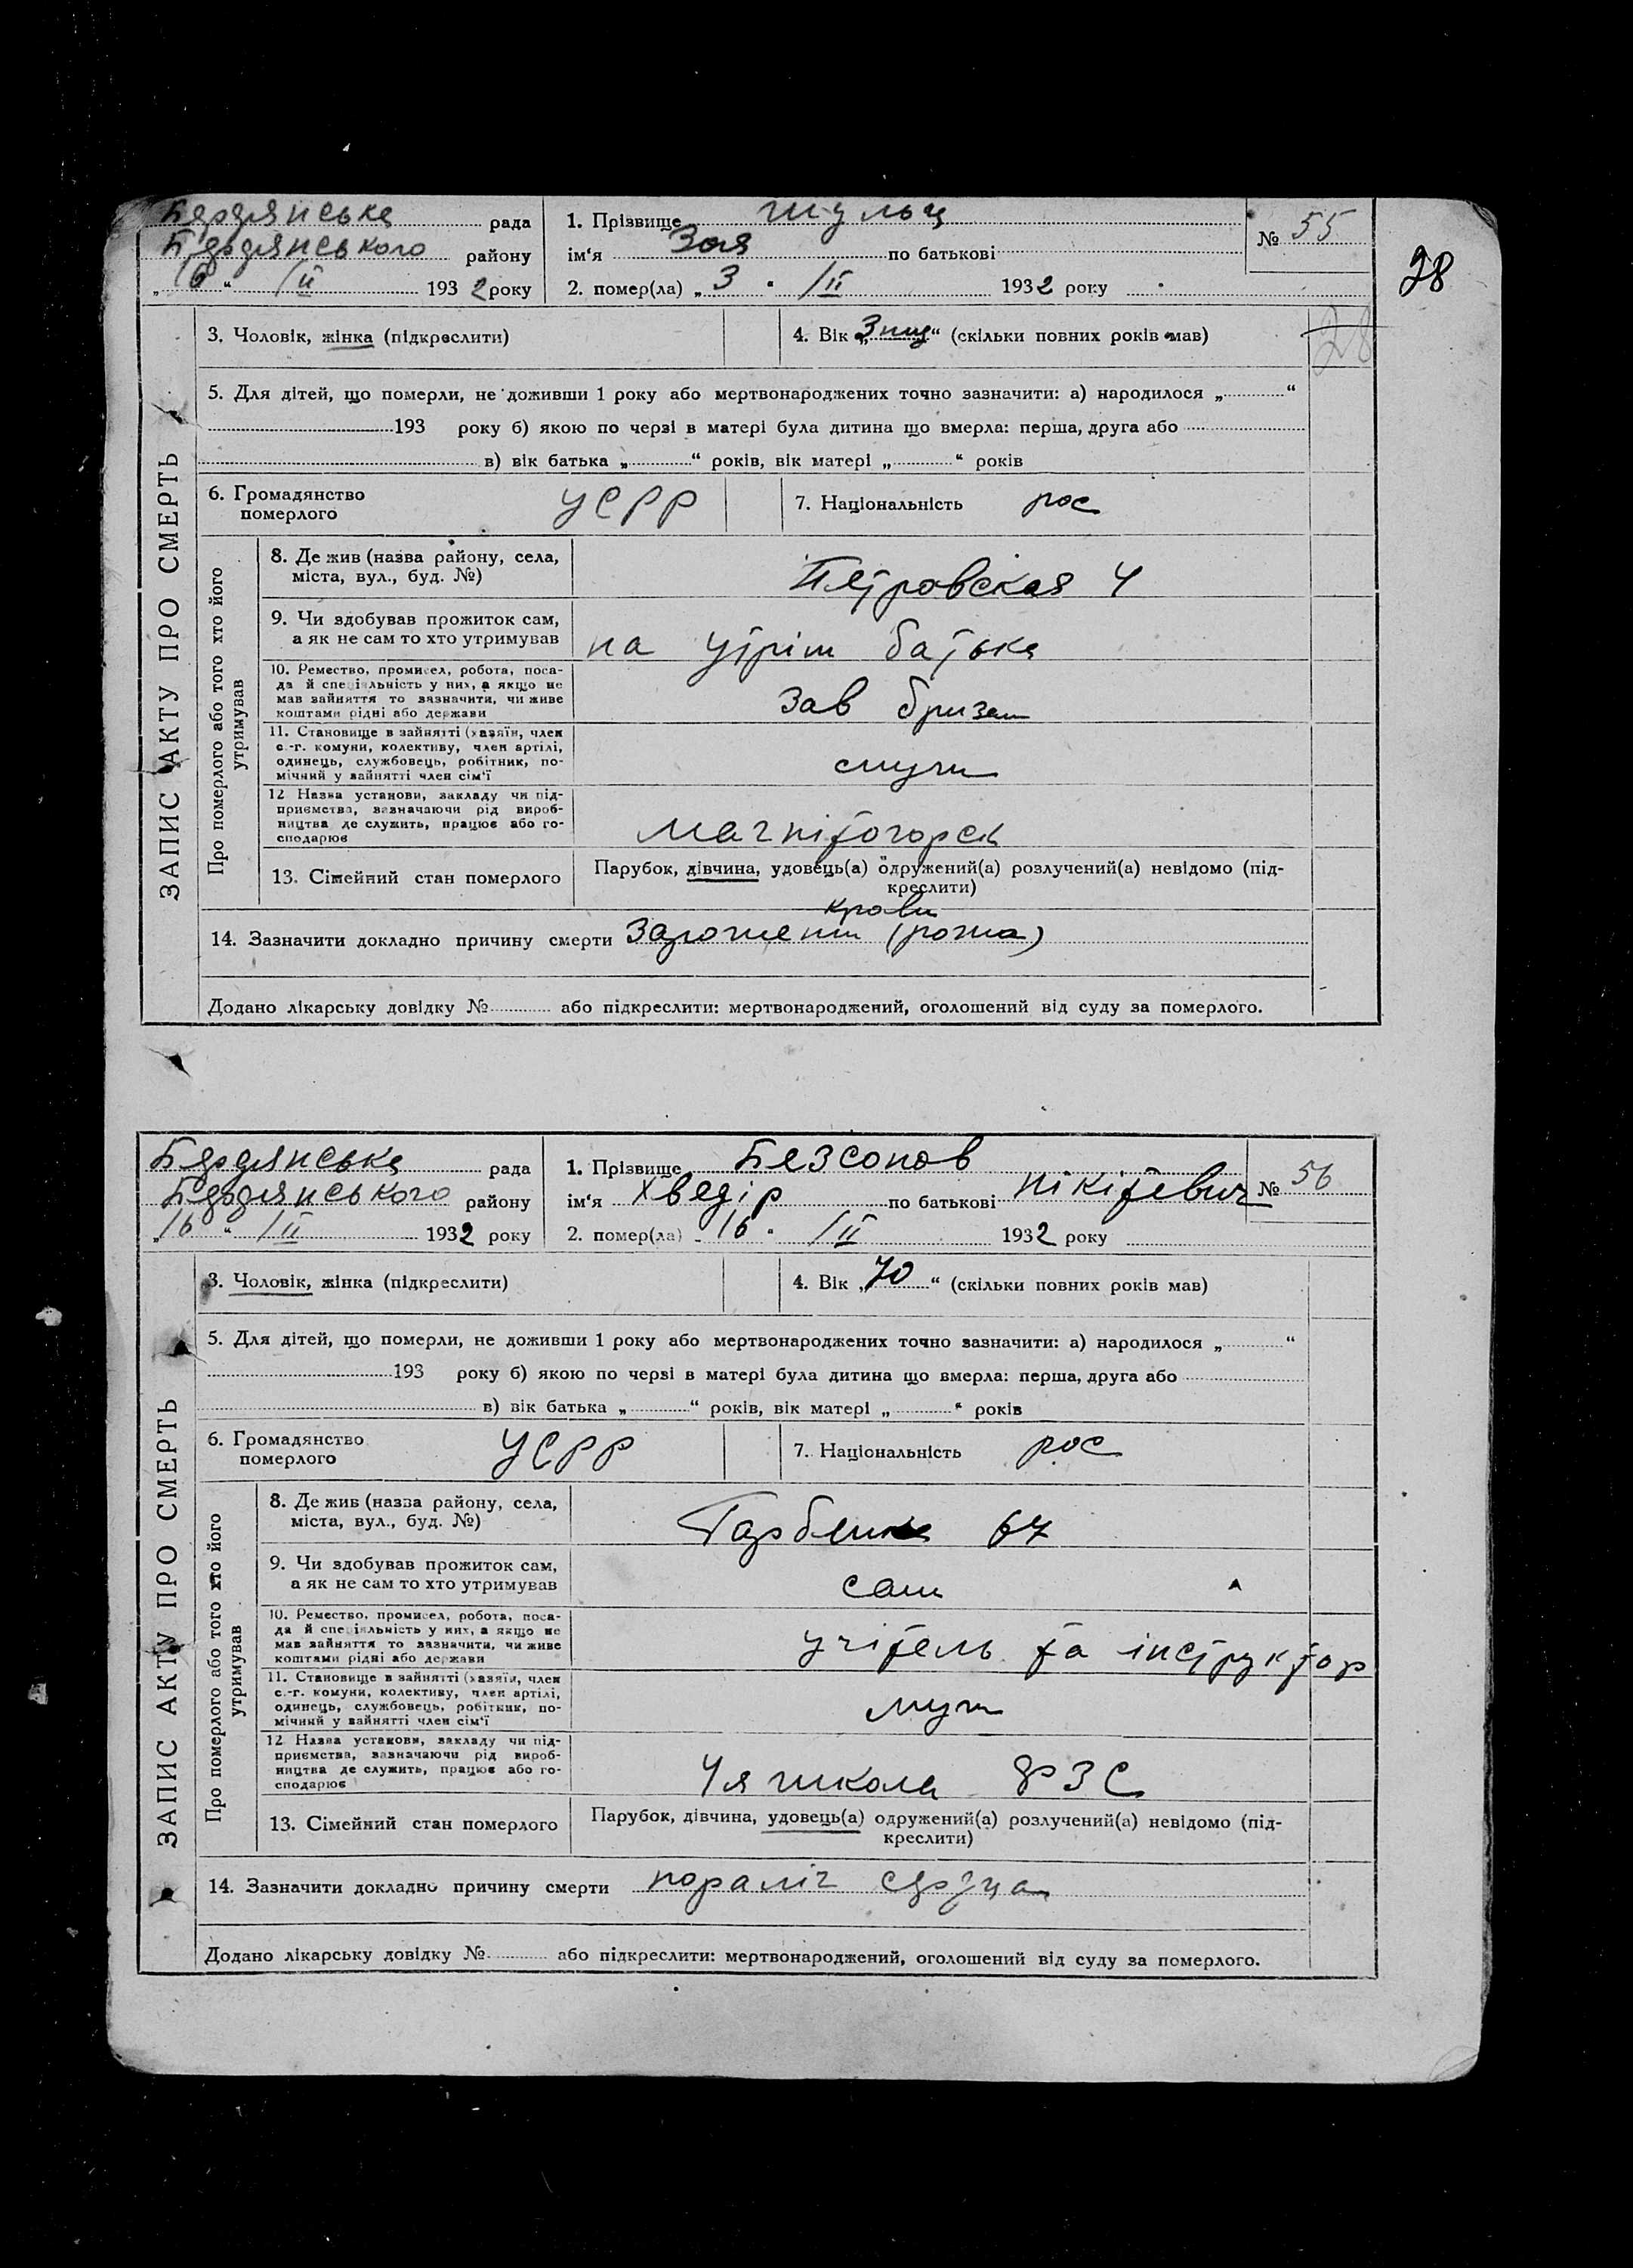 Бердянська рада
Бердянського району
„16“ III 1932 року
1. Прізвище Шульц
ім'я Зоя по батькові
2. помер(ла) „3“ III 1932 року
№ 55
28
28
ЗАПИС АКТУ ПРО СМЕРТЬ
3. Чоловік, жінка (підкреслити)
4. Вік „3 “ (скільки повних років мав)
5. Для дітей, що померли, не доживши 1 року або мертвонароджених точно зазначити: а) народилося „ “
193 року б) якою по черзі в матері була дитина що вмерла: перша, друга або
в) вік батька „ “ років, вік матері „ “ років
6. Громадянство
померлого УСРР
7. Національність рос
Про померлого або того хто його
утримував
8. Де жив (назва району, села,
міста, вул., буд. №) Петровская 4
9. Чи здобував прожиток сам,
а як не сам то хто утримував на утрім батька
10. Ремество, промисел, робота, поса-
да й спеціяльність у них, а якщо не
мав зайняття то зазначити, чи живе
коштами рідні або держави зав
11. Становище в зайнятті (хазяїн, член
с.-г. комуни, колективу, член артілі,
одинець, службовець, робітник, по-
мічний у зайнятті член сім'ї
12 Назва установи, закладу чи під-
приємства, зазначаючи рід вироб-
ництва де служить, працює або го-
сподарює Магнітогорск
13. Сімейний стан померлого
Парубок, дівчина, удовець(а) одружений(а) розлучений(а) невідомо (під-
креслити)
крови
14. Зазначити докладно причину смерти (рожа)
Додано лікарську довідку № або підкреслити: мертвонароджений, оголошений від суду за померлого.
Бердянська рада
Бердянського району
„16“ III 1932 року
1. Прізвище Безсонов
ім'я Хведір по батькові Нікітевич
2. помер(ла) „16“ III 1932 року
№ 56
ЗАПИС АКТУ ПРО СМЕРТЬ
3. Чоловік, жінка (підкреслити)
4. Вік „70“ (скільки повних років мав)
5. Для дітей, що померли, не доживши 1 року або мертвонароджених точно зазначити: а) народилося „ “
193 року б) якою по черзі в матері була дитина що вмерла: перша, друга або
в) вік батька „ “ років, вік матері „ “ років
6. Громадянство
померлого УСРР
7. Національність рос
Про померлого або того хто його
утримував
8. Де жив (назва району, села,
міста, вул., буд. №) 67
9. Чи здобував прожиток сам,
а як не сам то хто утримував сам
10. Ремество, промисел, робота, поса-
да й спеціяльність у них, а якщо не
мав зайняття то зазначити, чи живе
коштами рідні або держави учітель та інструктор
11. Становище в зайнятті (хазяїн, член
с.-г. комуни, колективу, член артілі,
одинець, службовець, робітник, по-
мічний у зайнятті член сім'ї
12 Назва установи, закладу чи під-
приємства, зазначаючи рід вироб-
ництва де служить, працює або го-
сподарює 4я школа ФЗС
13. Сімейний стан померлого
Парубок, дівчина, удовець(а) одружений(а) розлучений(а) невідомо (під-
креслити)
14. Зазначити докладно причину смерти пораліч сердца
Додано лікарську довідку № або підкреслити: мертвонароджений, оголошений від суду за померлого.